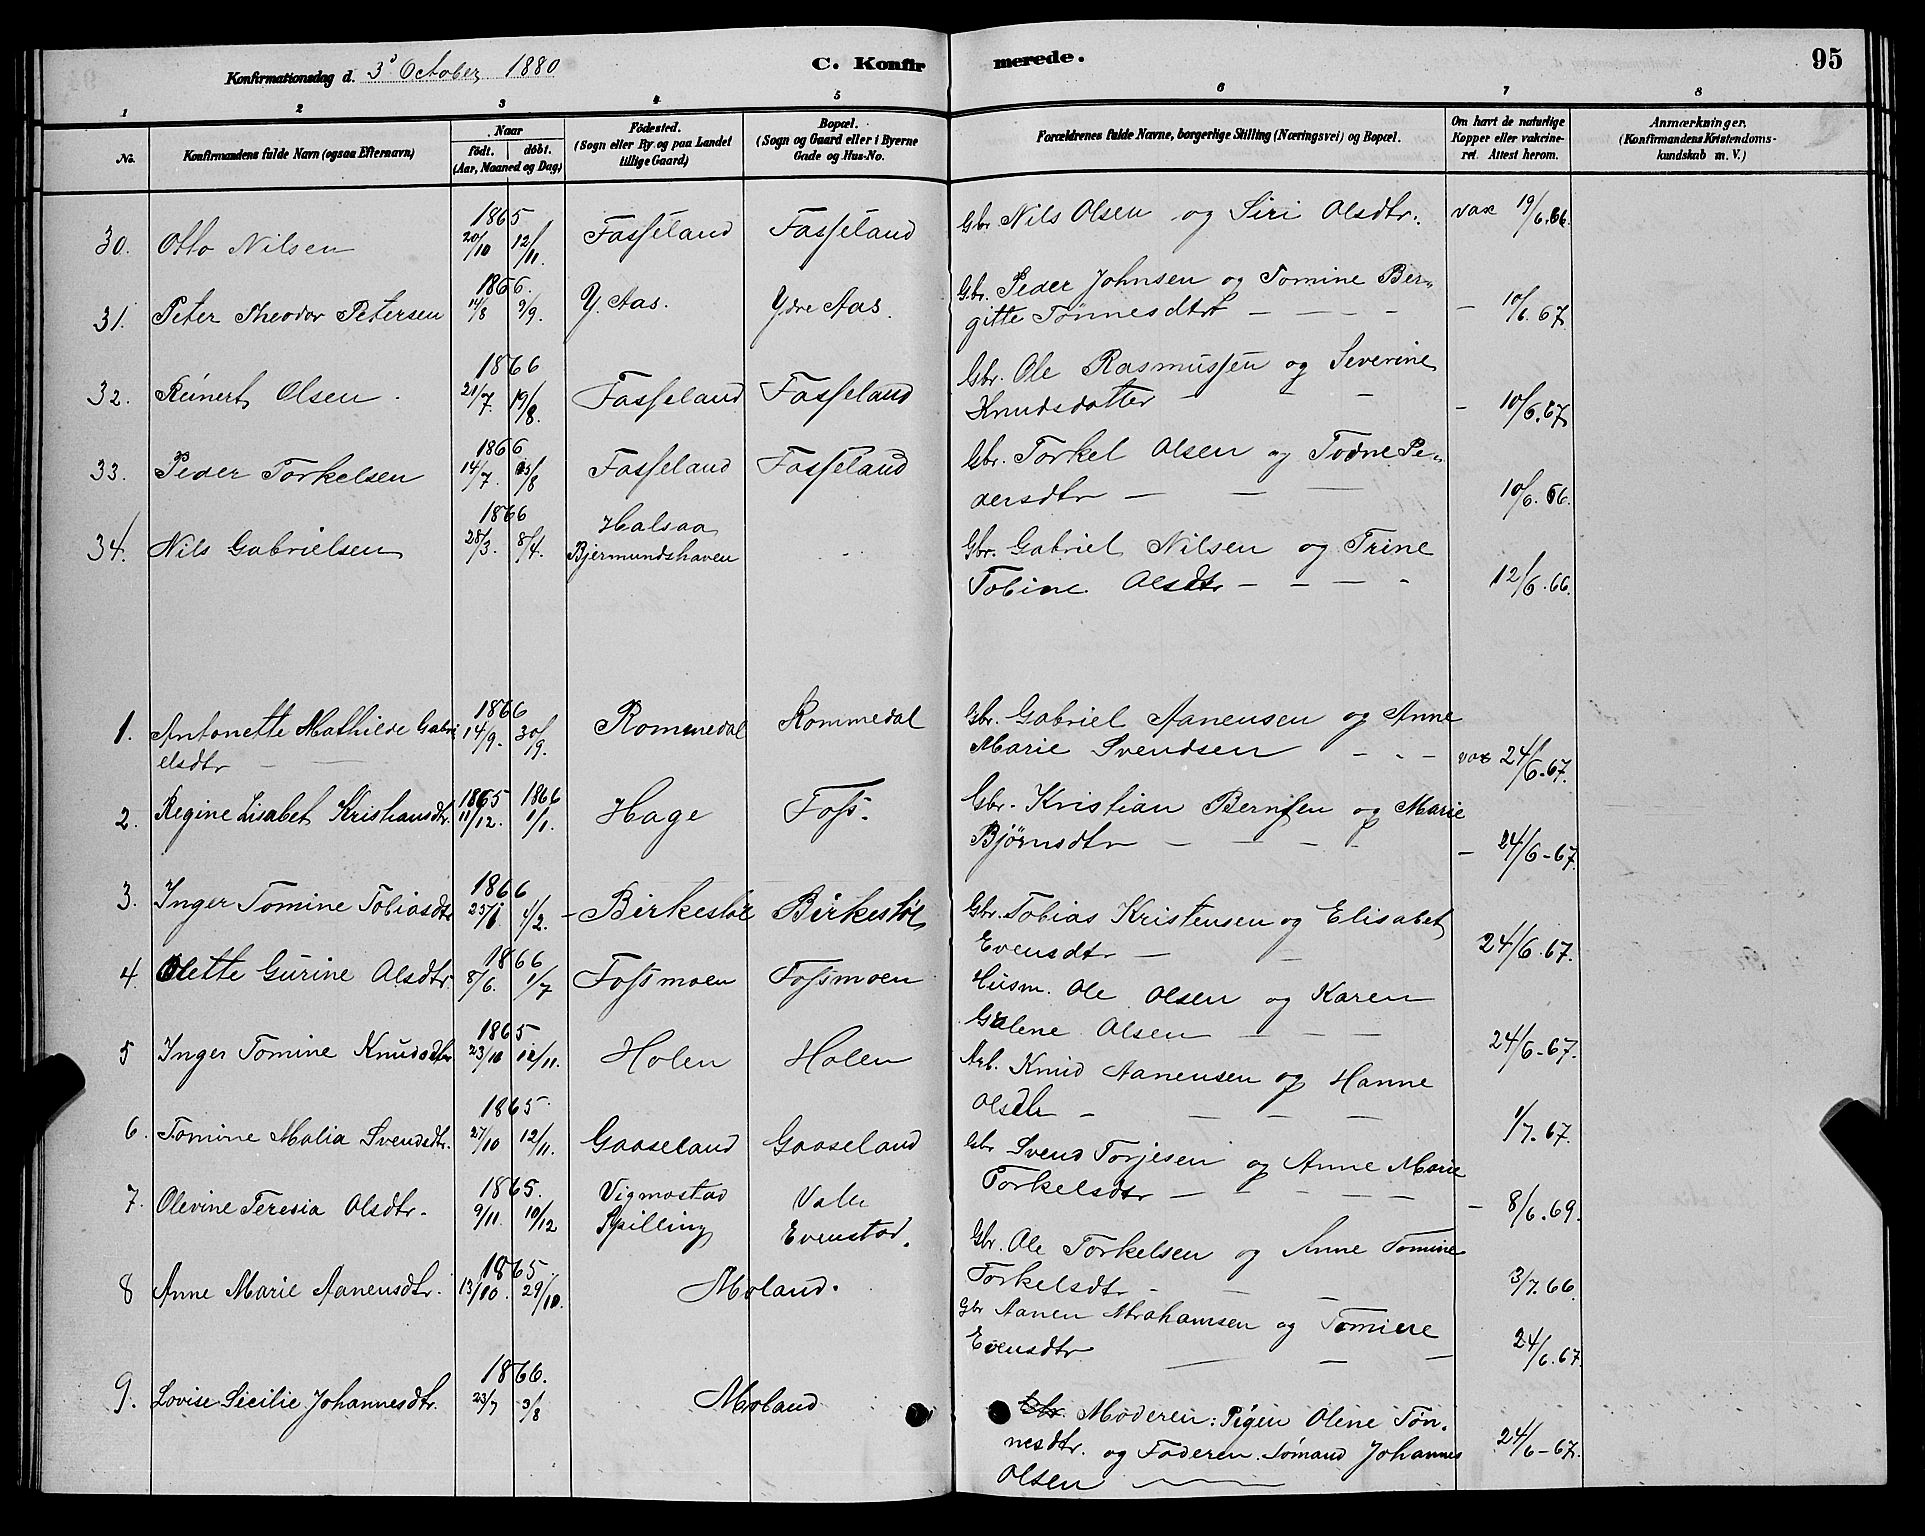 Konfirmationsdag d. 3' October 1880
C. Konfirmerede.
95
1 2 3 4 5 6 7 8
No.
Konfirmandens fulde Navn (ogsaa Efternavn)
Naar
födt. döbt.
(Aar, Maaned og Dag)
Födested.
(Sogn eller By og paa Landet
tillige Gaard)
Bopæl.
(Sogn og Gaard eller i Byerne
Gade og Hus-No.
Forældrenes fulde Navne, borgerlige Stilling (Næringsvei) og Bopæl.
Om havt de naturlige
Kopper eller vakcine-
ret. Attest herom.
Anmærkninger.
(Konfirmandens Kristendoms-
kundskab m. V.)
30. Otto Nilsen 1865 20/10 12/11. Fasseland Fasseland Gbr. Nils Olsen og Siri Olsdtr. vax 19/6.66.
31. Peter Theodor Petersen 1866. 14/8 2/9. Y. Aas. Ydre Aas. Gbr. Peder Johnsen og Tomine Ber-
gitte Tønnesdtr — — — — 10/6.67
32. Reinert Olsen. 1866 21/7. 19/8. Fasseland Fasseland Gbr. Ole Rasmussen og Severine
Knudsdatter — — — 10/6.67
33. Peder Torkelsen 1866 14/7. /8 Fasseland Fasseland Gbr. Torkel Olsen og Todne Pe-
dersdtr — — — 10/6.66.
34. Nils Gabrielsen 1866 28/3. 8/4. Halsaa
Bjermundshaven Gbr. Gabriel Nilsen og Trine
Tobine Olsdtr — — — 12/6.66.
1. Antonette Mathilde Gabri
elsdtr — — 1866 14/9. 30/9. Rommedal Rommedal Gbr. Gabriel Aanensen og Anne
Marie Svendsen — — — vax 24/6.67.
2. Regine Lisabet Kristiansdtr. 1865 11/12. 1866 1/1. Hage Foss. Gbr. Kristian Berntsen og Marie
Bjørnsdtr — — — — 24/6-67
3. Inger Tomine Tobiasdtr 1866 25/1 4/2. Birkestøl Birkestøl Gbr. Tobias Kristensen og Elisabet
Evensdtr — — 24/6.67.
4. Olette Gurine Olsdtr. 1866 8/6. 1/7 Fossmoen Fossmoen Husm. Ole Olsen og Karen
Galene Olsen — — — 24/6-67.
5 Inger Tomine Knudsdtr 1865 23/10 12/11. Holen Holen Arb. Knud Aanensen og Hanne
Olsdtr — — — — 1/7.67.
6. Tomine Malia Svendsdtr. 1865. 27/10 12/11. Gaaseland Gaaseland Gbr Svend Torjesen og Anne Marie
Torkelsdtr — — — — 8/6.69.
7. Olevine Teresia Olsdtr. 1865. 9/11. 10/12 Vigmostad
Spilling Valle
Evenstad. Gbr. Ole Torkelsen og Anne Tomine
Torkelsdtr — — — 3/7.66.
8 Anne Marie Aanensdtr. 1865. 13/10. 29/10. Moland. Gbr Aanen Abrahamsen og Tomine
Evensdtr — — — 24/6.67
9. Lovise Sicilie Johannesdtr. 1866. 23/7 3/8 Moland Gbr. Moderen: Pigen Olene Tøn-
nesdtr. og Faderen Sømand Johannes
Olsen — 24/6-67.